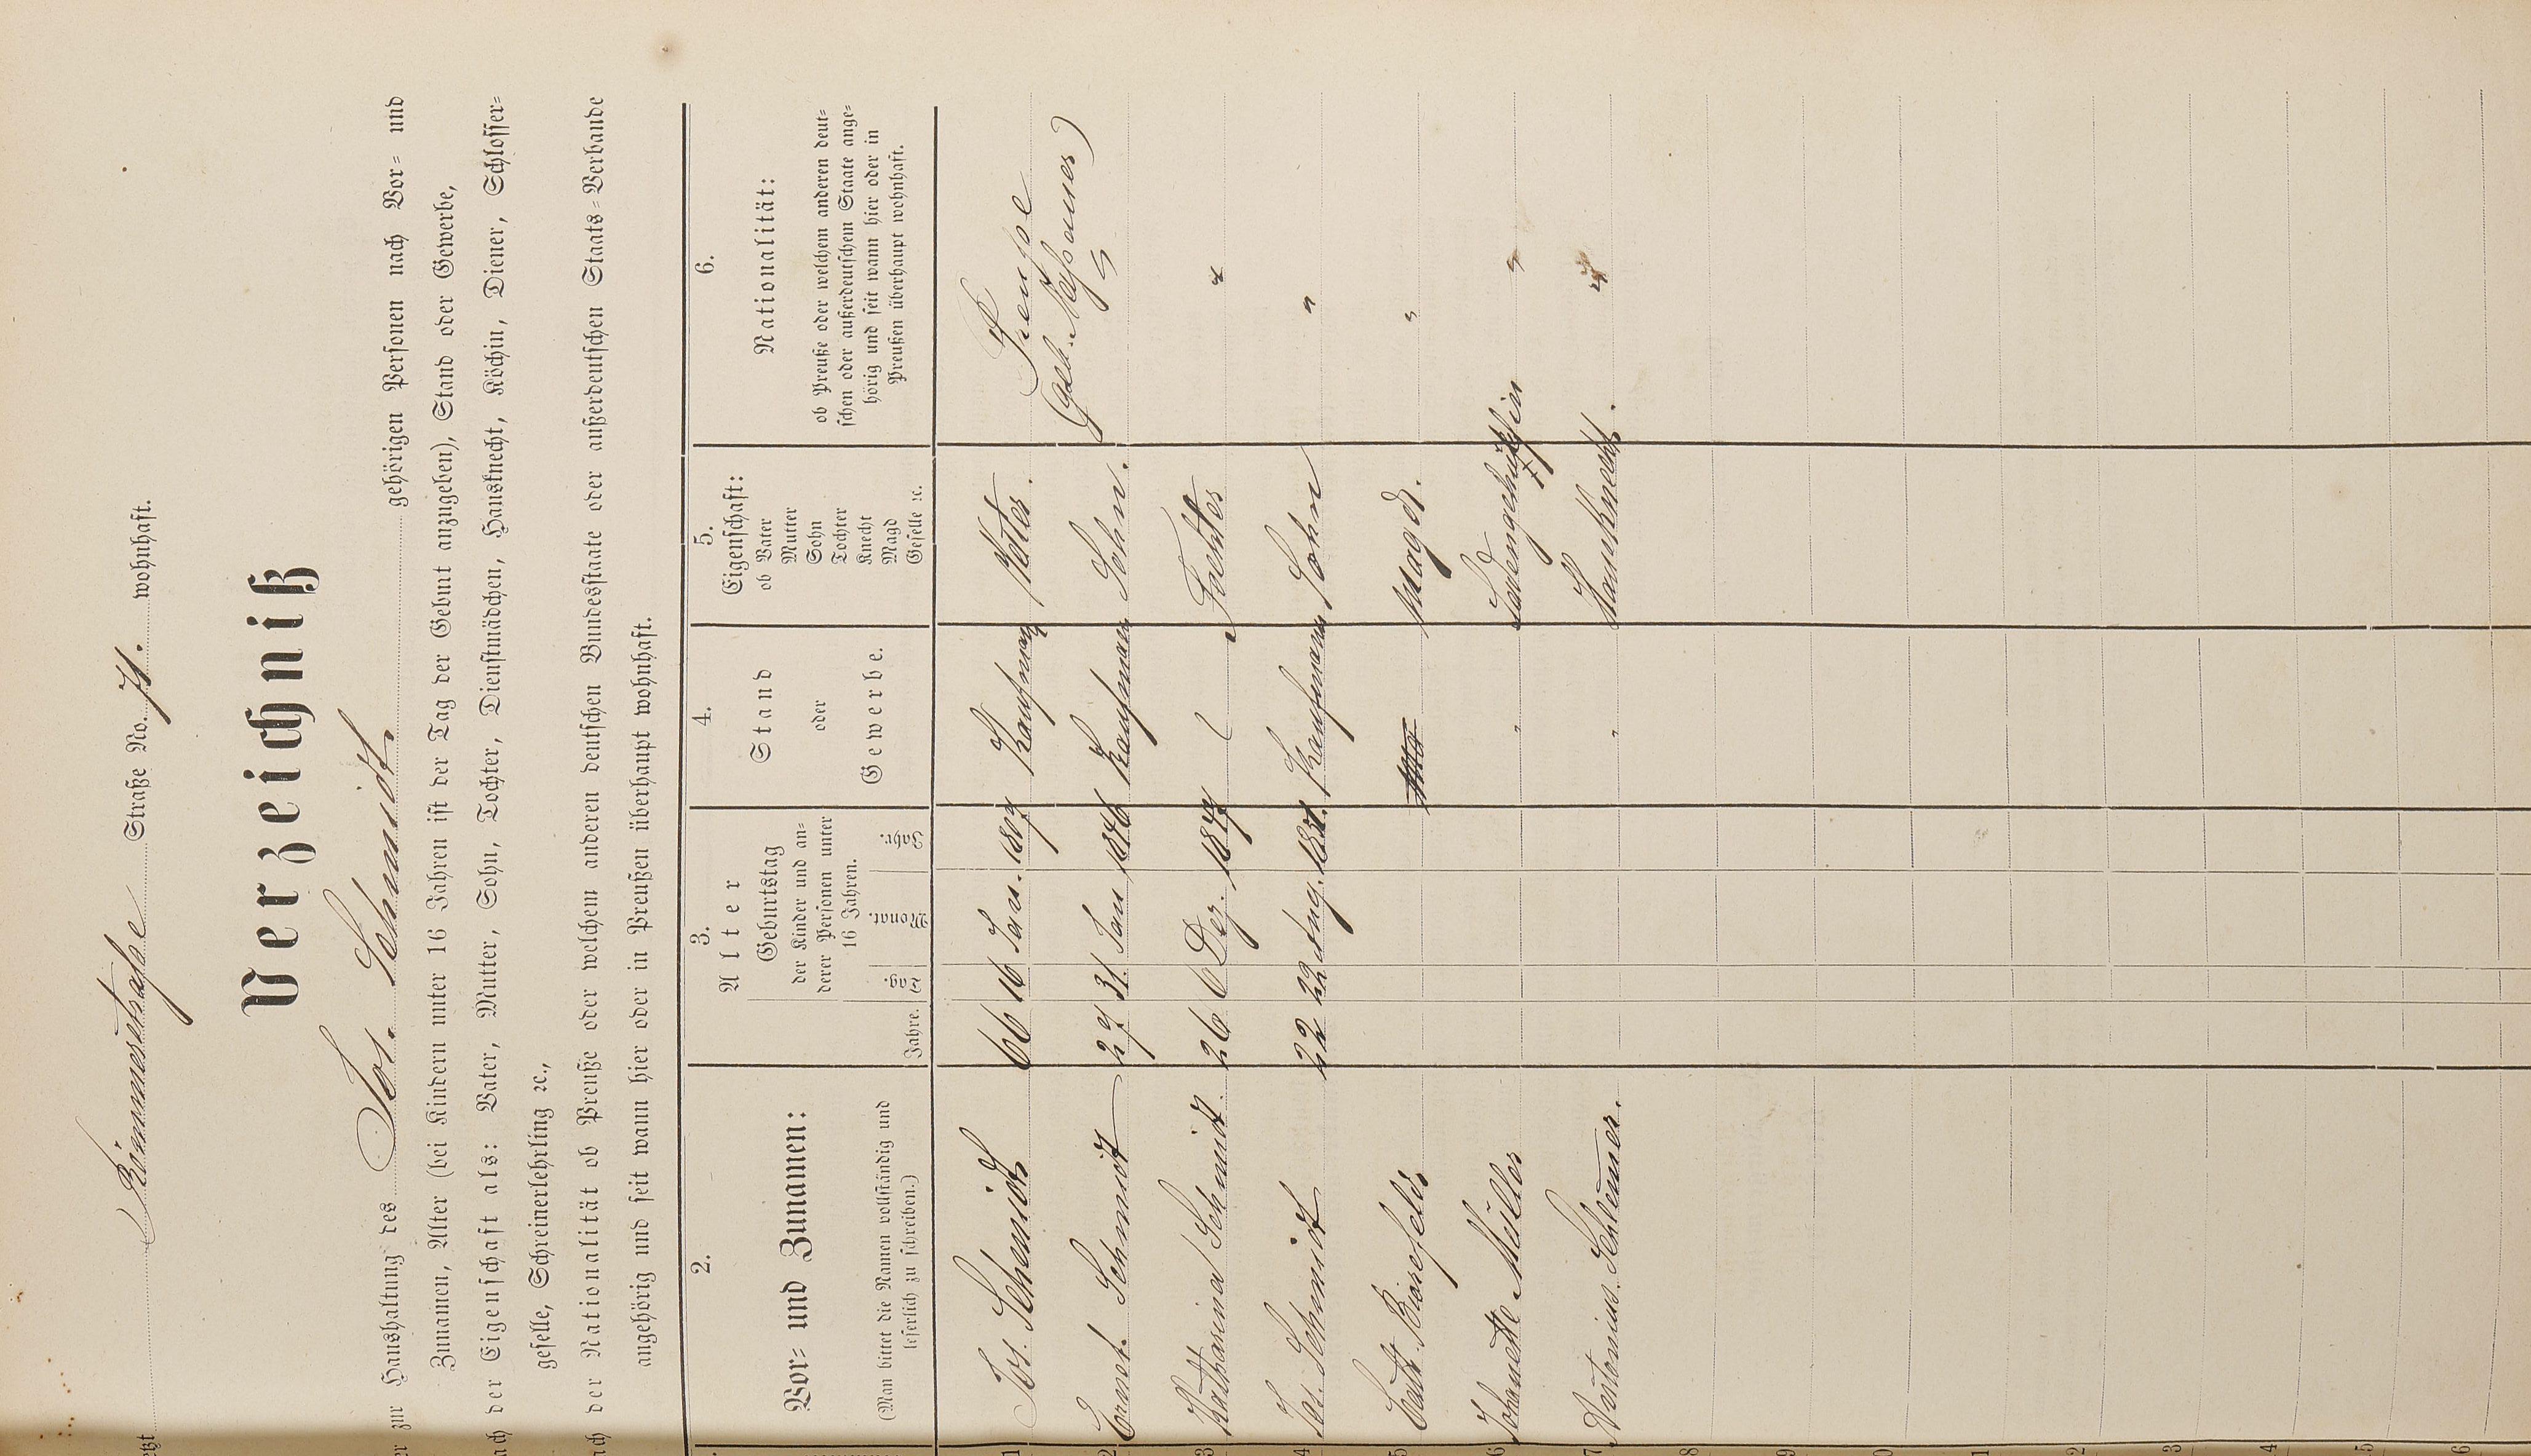 etzt Römmerstraße Straße No. 71. wohnhaft.
Verzeichniß
er zur Haushaltung des Jos. Schmidt gehörigen Personen nach Vor= und
Zunamen, Alter (bei Kindern unter 16 Jahren ist der Tag der Geburt anzugeben), Stand oder Gewerbe,
ach der Eigenschaft als: Vater, Mutter, Sohn, Tochter, Dienstmädchen, Hausknecht, Köchin, Diener, Schlosser=
geselle, Schreinerlehrling ꝛc.,
ach der Nationalität ob Preuße oder welchem anderen deutschen Bundesstaate oder außerdeutschen Staats=Verbande
angehörig und seit wann hier oder in Preußen überhaupt wohnhaft.
2. 3. 4. 5. 6.
Vor= und Zunamen:
(Man bittet die Namen vollständig und
leserlich zu schreiben.)
Alter
Geburtstag
der Kinder und an=
derer Personen unter
16 Jahren.
Jahre. Tag. Monat. Jahr.
Stand
oder
Gewerbe.
Eigenschaft:
ob Vater
Mutter
Sohn
Tochter
Knecht
Magd
Geselle ꝛc.
Nationalität:
ob Preuße oder welchem anderen deut=
schen oder außerdeutschem Staate ange=
hörig und seit wann hier oder in
Preußen überhaupt wohnhaft.
1 Jos. Schmidt 66 16 Jan. 1807 Kaufmann Vater. Preuße
2 Ernst. Schmidt 27 31. Jan 1846 Kaufmann Sohn. (geb. Nassauer)
3 Katharina Schmidt. 26 6 Dez. 1847 Tochter "
4 Jos. Schmidt 22 22 Aug. 1851. Kaufmann Sohn "
5 Cath. Magd. "
6 Johanette Müller " Ladengehülfin "
7 Antonius " Hausknecht. "
8
9
0
1
2
3
4
5
6